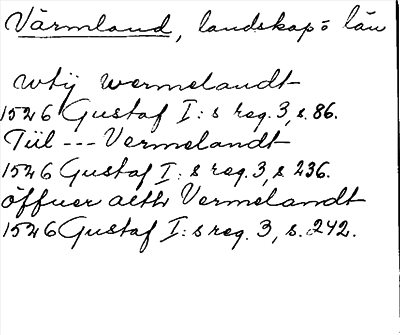 Värmland, landskap o län
wtÿ wermelandt
1526 Gustaf I:s reg. 3, s. 86.
Tiil --- Vermelandt
1526 Gustaf I:s reg. 3, s. 236.
öffuer alth Vermelandt
1526 Gustaf I:s reg. 3, s. 242.